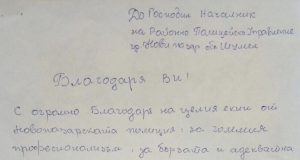 До Господин Началник
на Районно Полицейско Управление
гр. Нови пазар обл. Шумен
Благодаря Ви!
С огромно Благодаря на целия екип от
Новопазарската полиция: за големия
професионализъм, за бързата и адекватна